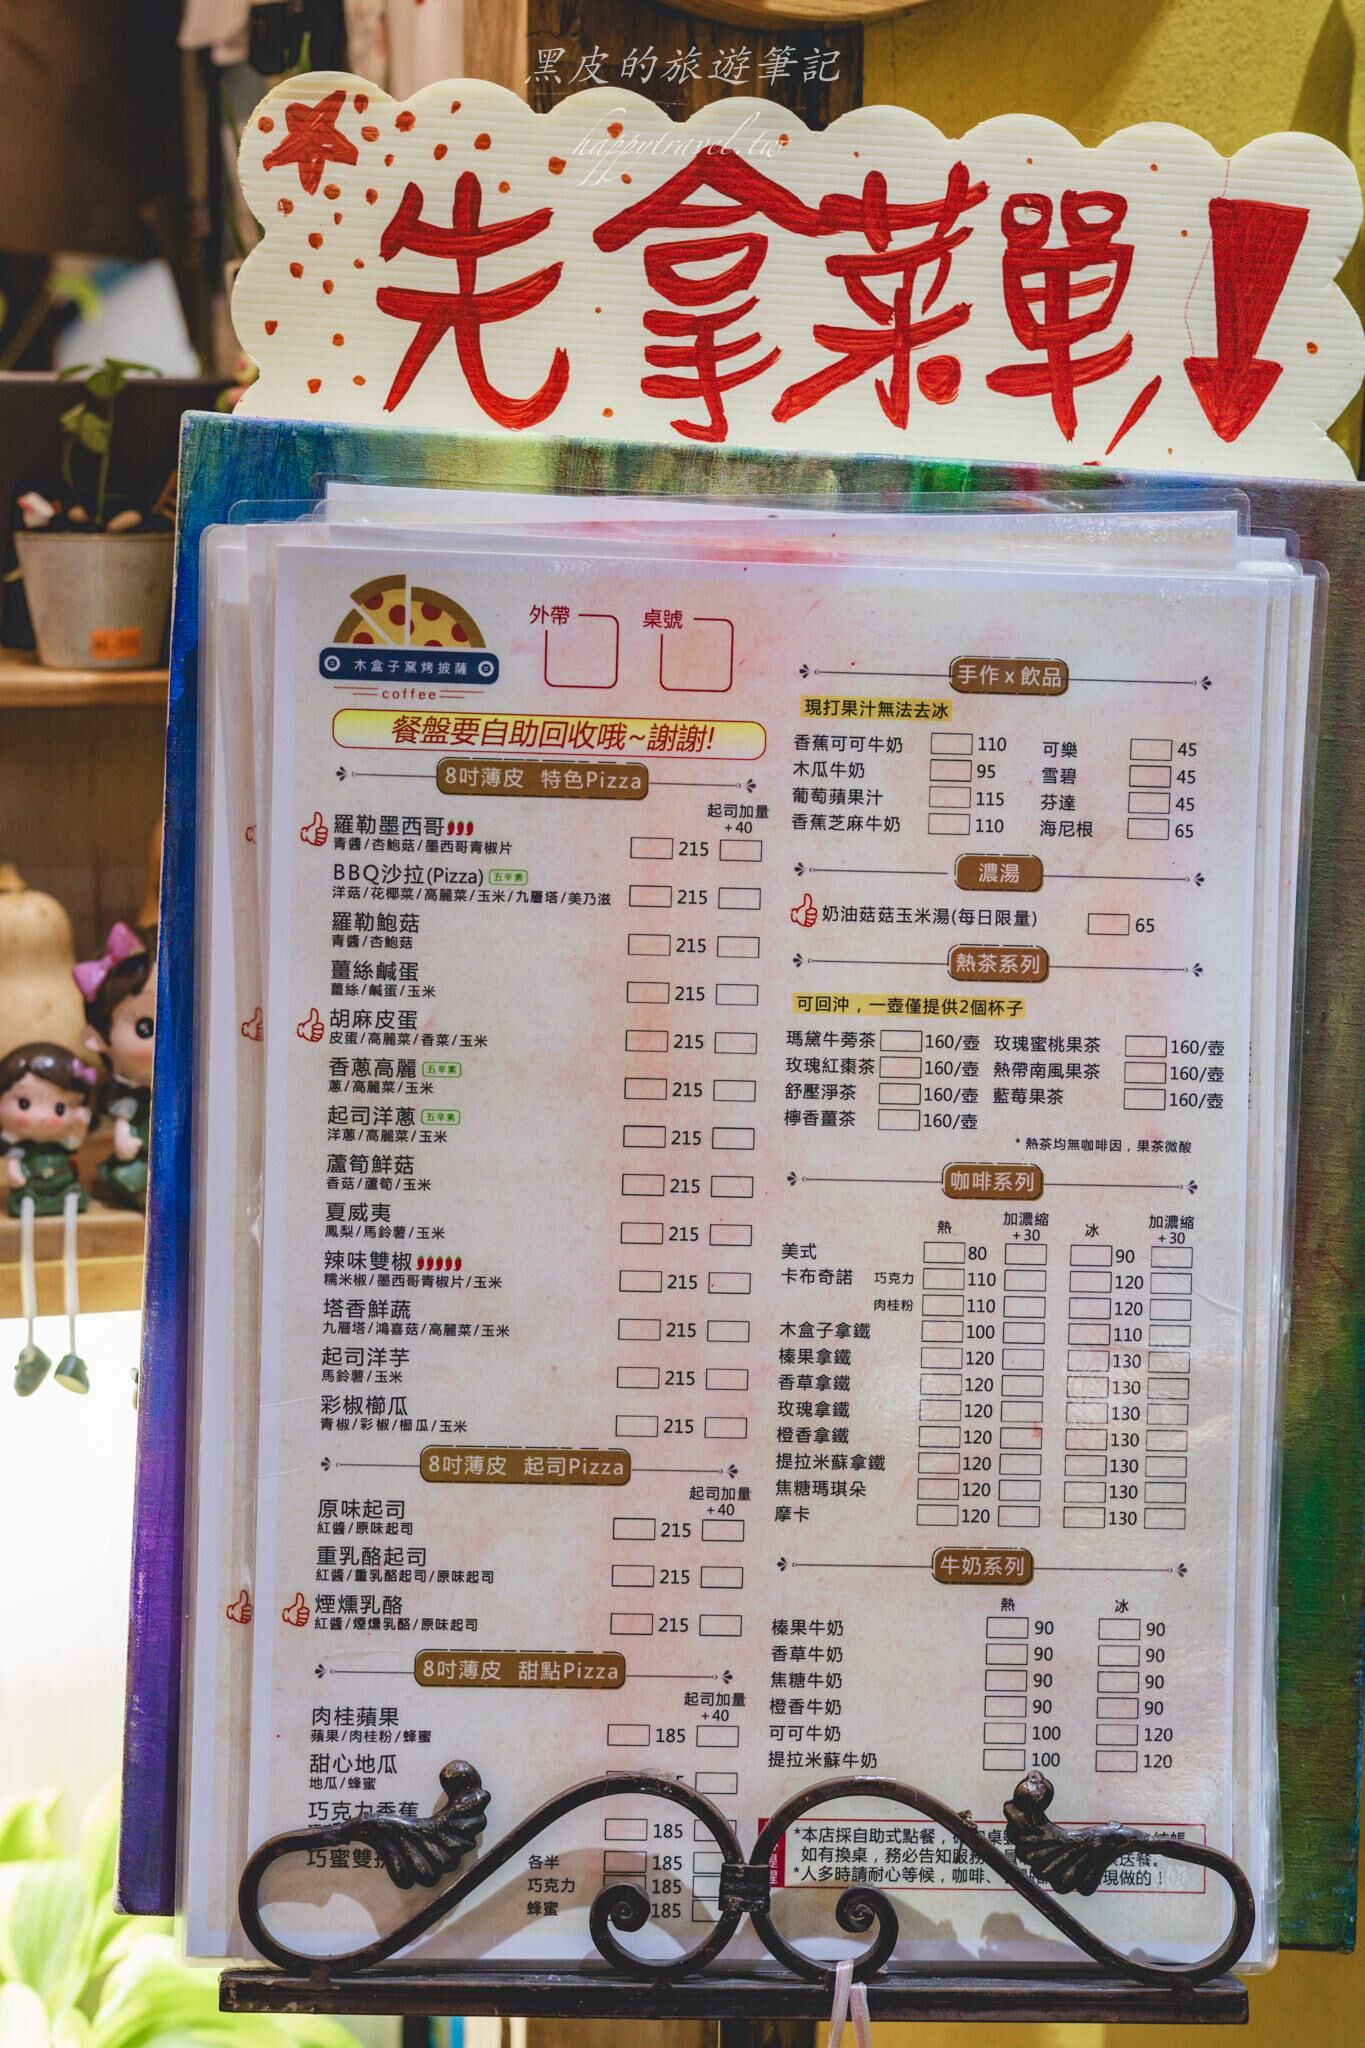 黑皮的旅遊筆記
happytravel.tw
先拿菜單
木盒子窯烤披薩
coffee
外帶
桌號
餐盤要自助回收哦~謝謝!
8吋薄皮 特色Pizza
起司加量
+40
羅勒墨西哥
青醬/杏鮑菇/墨西哥青椒片
215
BBQ沙拉(Pizza) 五辛素
洋菇/花椰菜/高麗菜/玉米/九層塔/美乃滋
215
羅勒鮑菇
青醬/杏鮑菇
215
薑絲鹹蛋
薑絲/鹹蛋/玉米
215
胡麻皮蛋
皮蛋/高麗菜/香菜/玉米
215
香蔥高麗 五辛素
蔥/高麗菜/玉米
215
起司洋蔥 五辛素
洋蔥/高麗菜/玉米
215
蘆筍鮮菇
香菇/蘆筍/玉米
215
夏威夷
鳳梨/馬鈴薯/玉米
215
辣味雙椒
糯米椒/墨西哥青椒片/玉米
215
塔香鮮蔬
九層塔/鴻喜菇/高麗菜/玉米
215
起司洋芋
馬鈴薯/玉米
215
彩椒櫛瓜
青椒/彩椒/櫛瓜/玉米
215
8吋薄皮 起司Pizza
起司加量
+40
原味起司
紅醬/原味起司
215
重乳酪起司
紅醬/重乳酪起司/原味起司
215
煙燻乳酪
紅醬/煙燻乳酪/原味起司
215
8吋薄皮 甜點Pizza
起司加量
+40
肉桂蘋果
蘋果/肉桂粉/蜂蜜
185
甜心地瓜
地瓜/蜂蜜
巧克力香蕉
185
巧蜜雙
各半 185
巧克力 185
蜂蜜 185
手作x飲品
現打果汁無法去冰
香蕉可可牛奶 110 可樂 45
木瓜牛奶 95 雪碧 45
葡萄蘋果汁 115 芬達 45
香蕉芝麻牛奶 110 海尼根 65
濃湯
奶油菇菇玉米湯(每日限量) 65
熱茶系列
可回沖，一壺僅提供2個杯子
瑪黛牛蒡茶 160/壺 玫瑰蜜桃果茶 160/壺
玫瑰紅棗茶 160/壺 熱帶南風果茶 160/壺
舒壓淨茶 160/壺 藍莓果茶 160/壺
檸香薑茶 160/壺
* 熱茶均無咖啡因，果茶微酸
咖啡系列
熱 加濃縮 +30 冰 加濃縮 +30
美式 80 90
卡布奇諾 巧克力 110 120
肉桂粉 110 120
木盒子拿鐵 100 110
榛果拿鐵 120 130
香草拿鐵 120 130
玫瑰拿鐵 120 130
橙香拿鐵 120 130
提拉米蘇拿鐵 120 130
焦糖瑪琪朵 120 130
摩卡 120 130
牛奶系列
熱 冰
榛果牛奶 90 90
香草牛奶 90 90
焦糖牛奶 90 90
橙香牛奶 90 90
可可牛奶 100 120
提拉米蘇牛奶 100 120
*本店採自助式點餐，
如有換桌，務必告知服務 送餐。
*人多時請耐心等候，咖啡、 現做的！